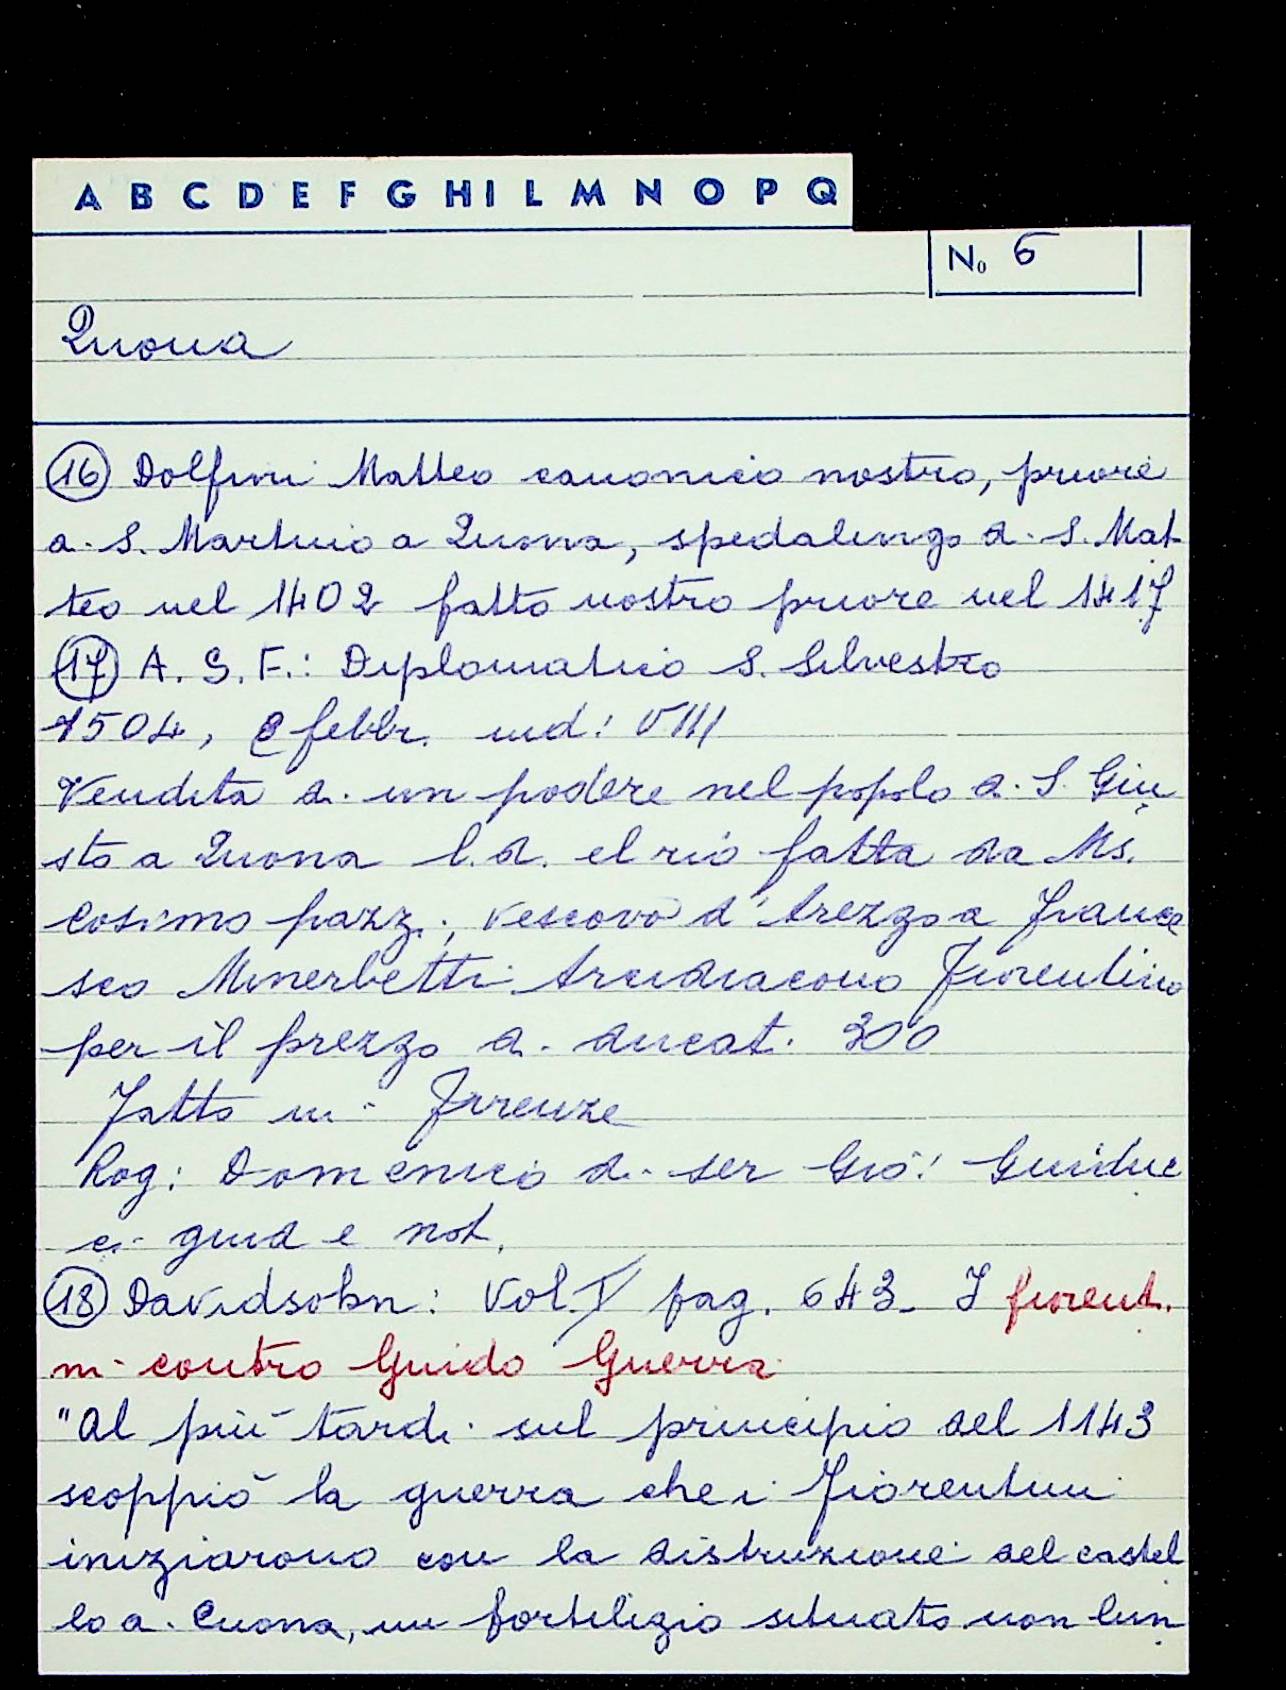 A B C D E F G H I L M N O P Q
No 6
Quona
16 Dolfini Matteo canonico nostro, priore
di S. Martino a Quona, spedalingo di S. Mat
teo nel 1402 fatto nostro priore nel 1417
17 A. S. F.: Diplomatico S. Silvestro
1504, febbr. ind: VIII
Vendita di un podere nel popolo di S. Giu
sto a Quona l.d. el rio fatta da Ms.
Cosimo pazzi, vescovo d'Arezzo a France
sco Minerbetti Arcidiacono Fiorentino
per il prezzo di ducati 300
Fatto in Firenze
Rog: Domenico di ser Giò: Guiduc
ci giud e not.
18 Davidsohn: Vol. I pag. 643- I fiorenti
ni contro Guido Guerra
"Al più tardi sul principio del 1143
scoppiò la guerra che i Fiorentini
iniziarono con la distruzione del castel
lo di Cuona, un fortilizio situato non lun